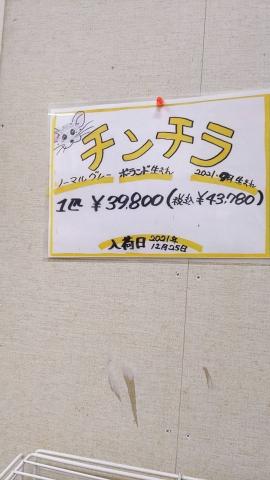 チンチラ
ノーマルグレー ポーランド生まれ 2021.9月生まれ
1匹 ¥39,800(税込 ¥43,780)
入荷日 2021年
12月25日